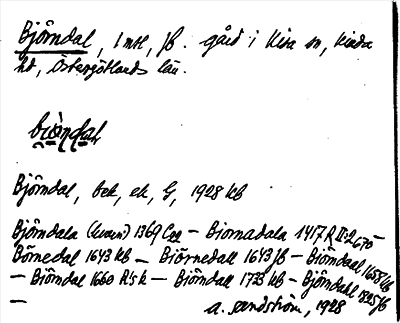 Björndal, 1 mtl, fb. gård i Kisa sn, Kinda
hd, Östergötlands län.
biörndal
Björndal, bek, ek, G, 1928 kb
Björndala (kvarn) 1369 – Biornadala 1417 R II:2 670 –
Börnedal 1643 kb – Biörnedall 1643 Jb – Biörndaal 1658 kb
– Biörndal 1660 R:sk – Biörndall 1733 kb – Björndahl 1825 Jb
–
a. Sandström, 1928